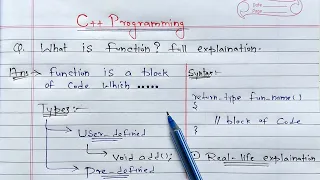 C++ Programming
Q. What is function? full explaination.
Ans → function is a block
of code which .....
Types:-
User-defined
void add();
Pre-defined
Syntax:-
return_type fun_name()
{
// block of code
}
Real-life explaination